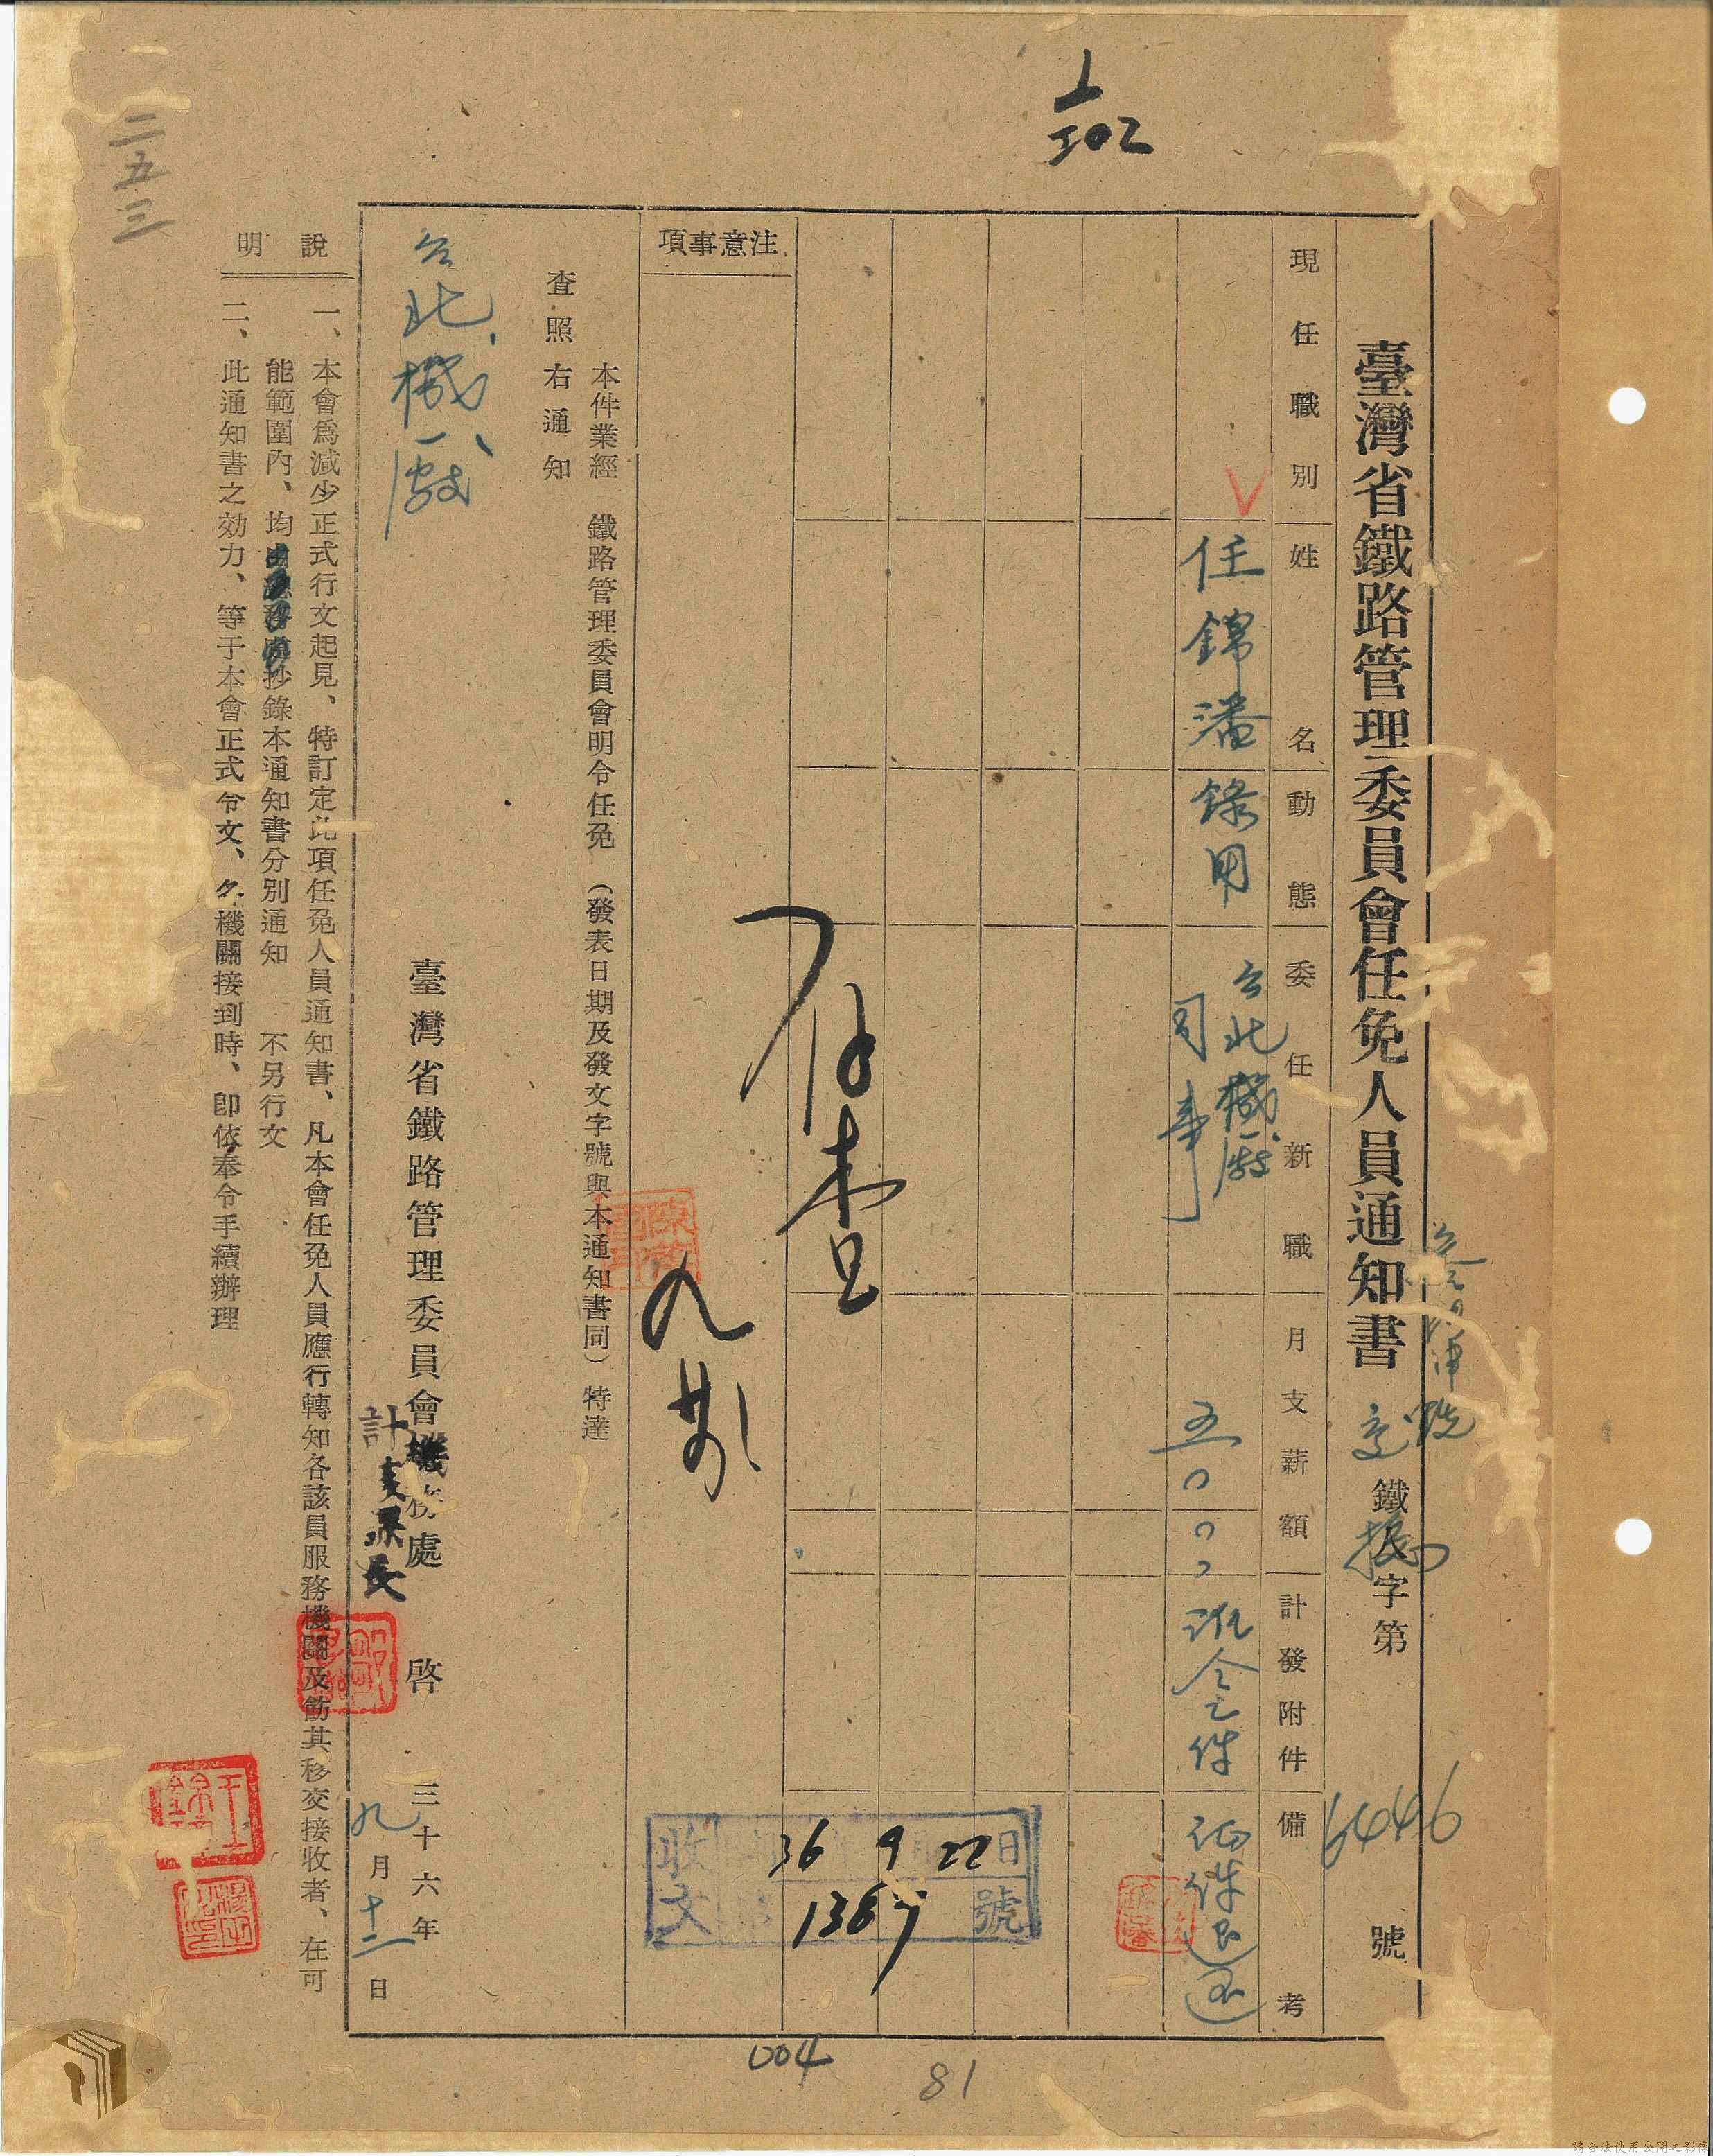 臺灣省鐵路管理委員會任免人員通知書
鐵 字第6446號
現任職別
姓名
動態
委任新職
月支薪額
計發附件
備考
任錦潘
錄用
台北機廠
司事
五〇〇〇
派令乙件
証件退还
注意事項
存查
收文
36 9 22日
號
本件業經 鐵路管理委員會明令任免 (發表日期及發文字號與本通知書同) 特達
查照右通知
台北機厰
臺灣省鐵路管理委員會機務處
啓
三十六年
九月十二日
說明
一、本會爲減少正式行文起見、特訂定此項任免人員通知書、凡本會任免人員應行轉知各該員服務機關及飭其移交接收者、在可
能範圍內、均 抄錄本通知書分別通知 不另行文
二、此通知書之効力、等于本會正式令文、各機關接到時、卽依奉令手續辦理
二五三
004
81
請合法使用公開之影像